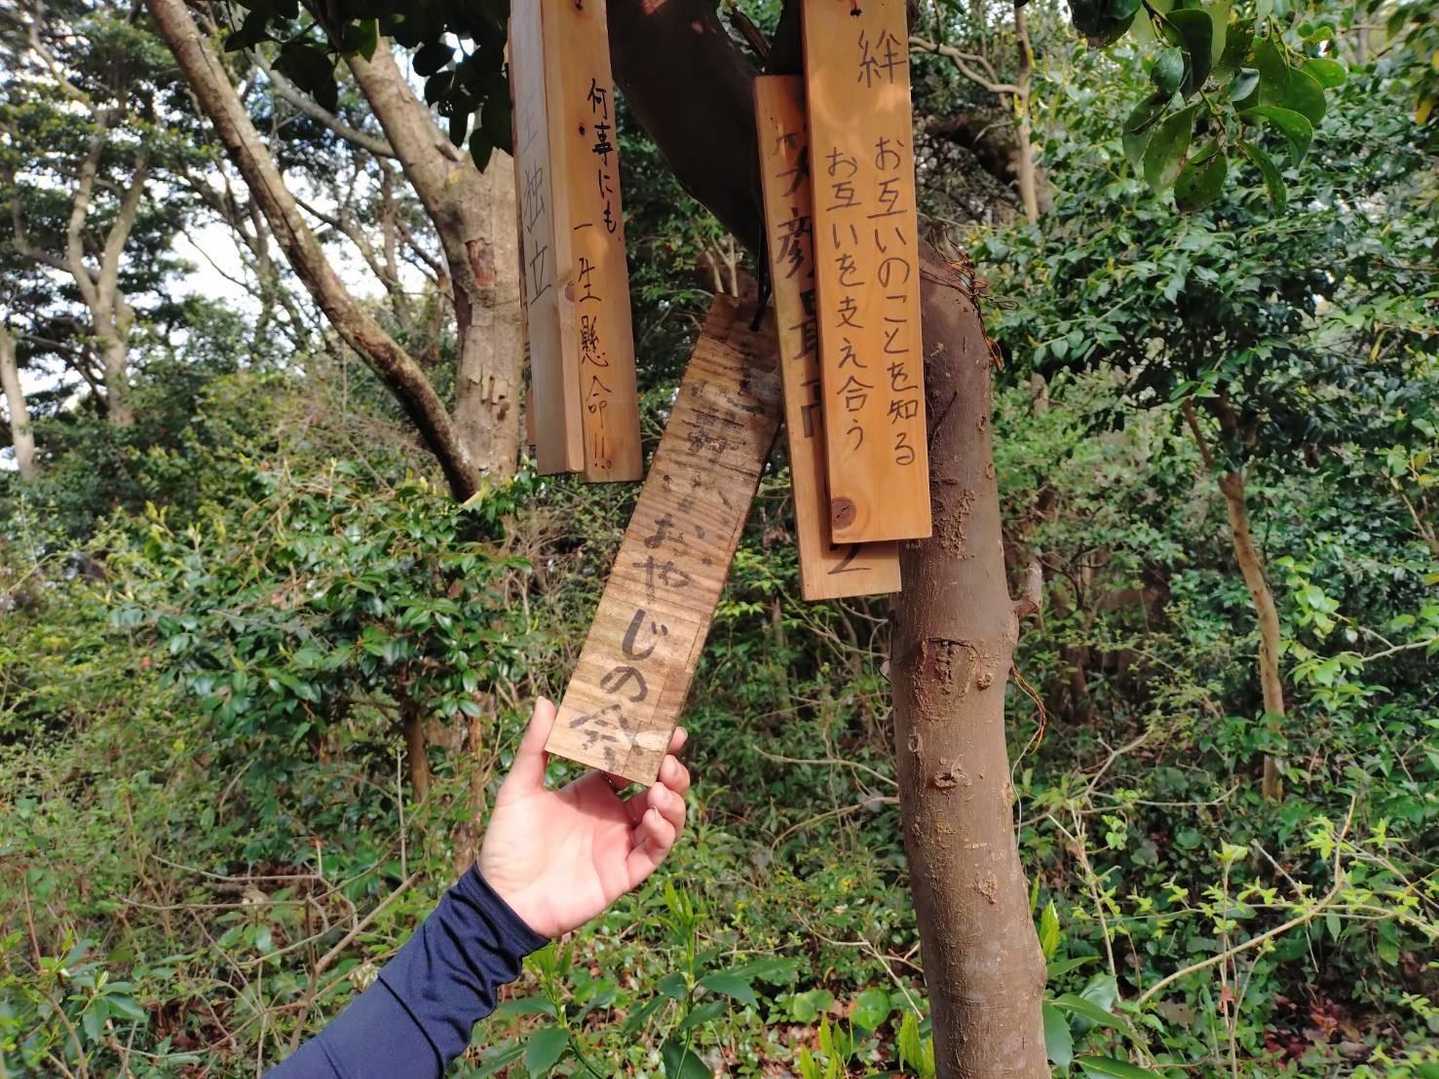 絆
お互いのことを知る
お互いを支え合う
笑顔最高
2
何事にも
一生懸命!!
独立
おやじの会